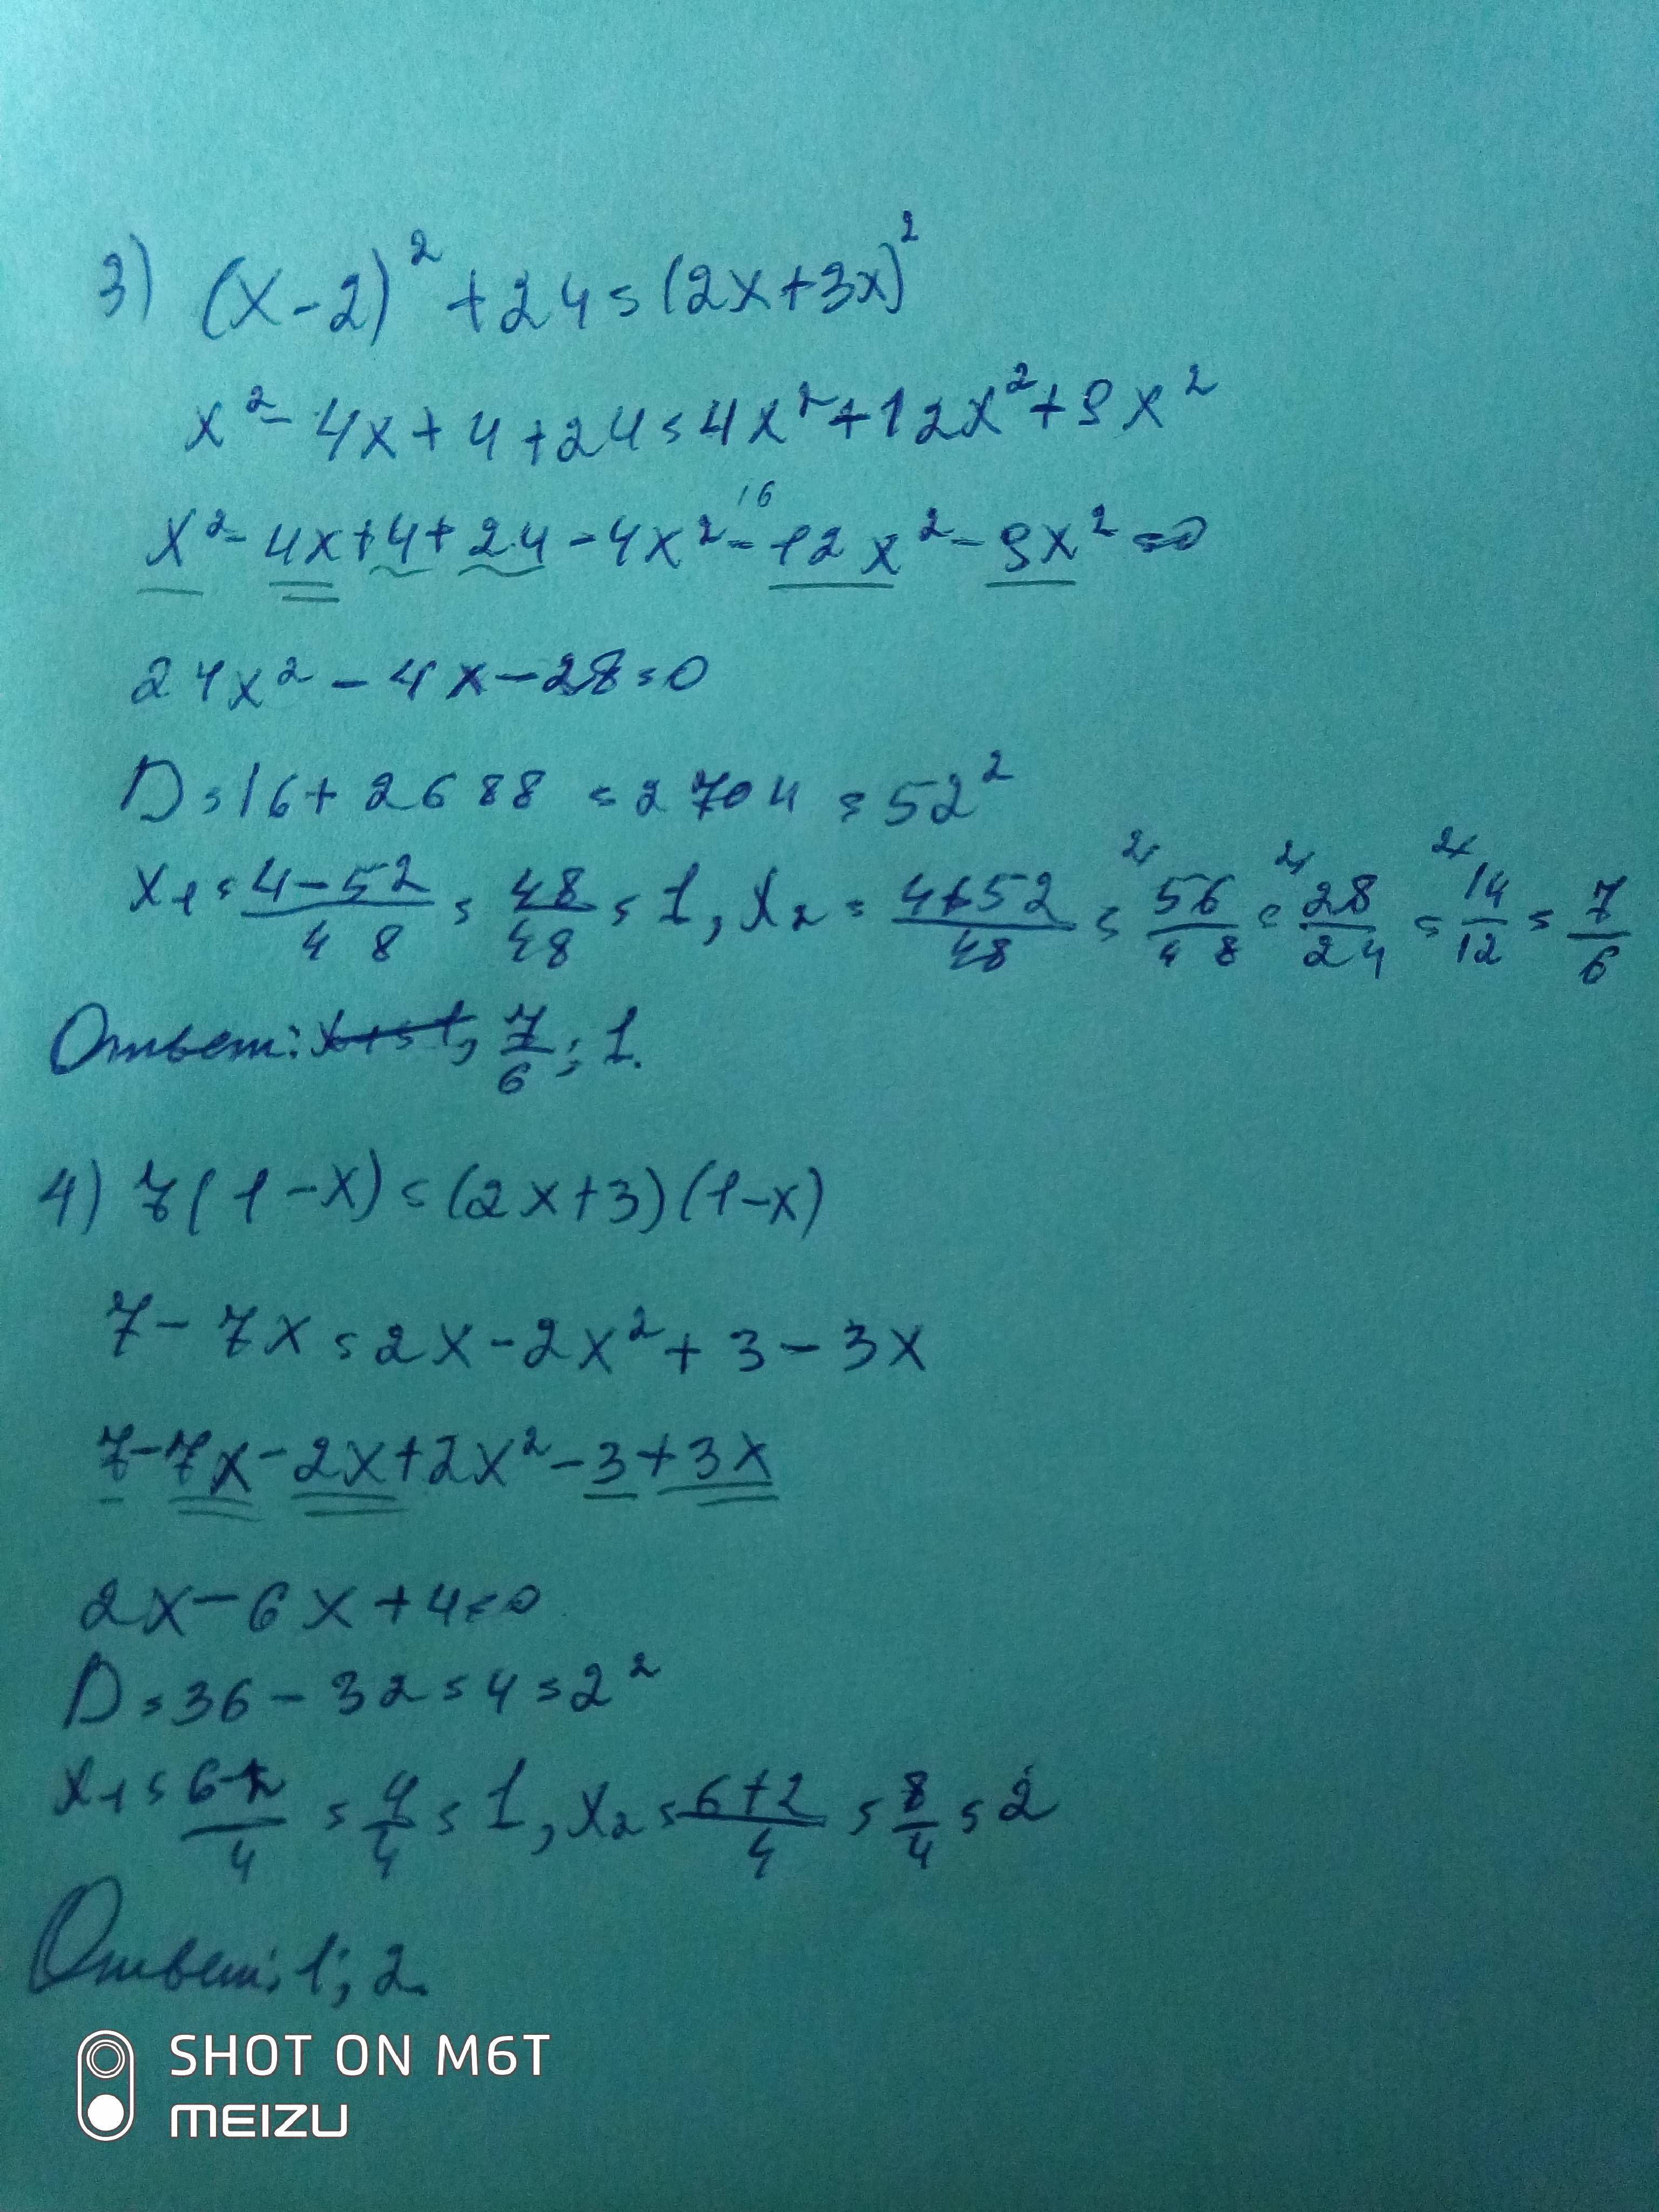 3) (x-2)² + 24 = (2x+3x)²
x² - 4x + 4 + 24 = 4x² + 12x² + 9x²
16
x² - 4x + 4 + 24 - 4x² - 12x² - 9x² = 0
24x² - 4x - 28 = 0
D = 16 + 2688 = 2704 = 52²
x₁ = (4-52)/48 = 48/48 = 1, x₂ = (4+52)/48 = 56/48 = 28/24 = 14/12 = 7/6
Ответ: 7/6; 1.
4) 7(1-x) = (2x+3)(1-x)
7 - 7x = 2x - 2x² + 3 - 3x
7 - 7x - 2x + 2x² - 3 + 3x
2x - 6x + 4 = 0
D = 36 - 32 = 4 = 2²
x₁ = (6-2)/4 = 4/4 = 1, x₂ = (6+2)/4 = 8/4 = 2
Ответ: 1; 2.
SHOT ON M6T
MEIZU